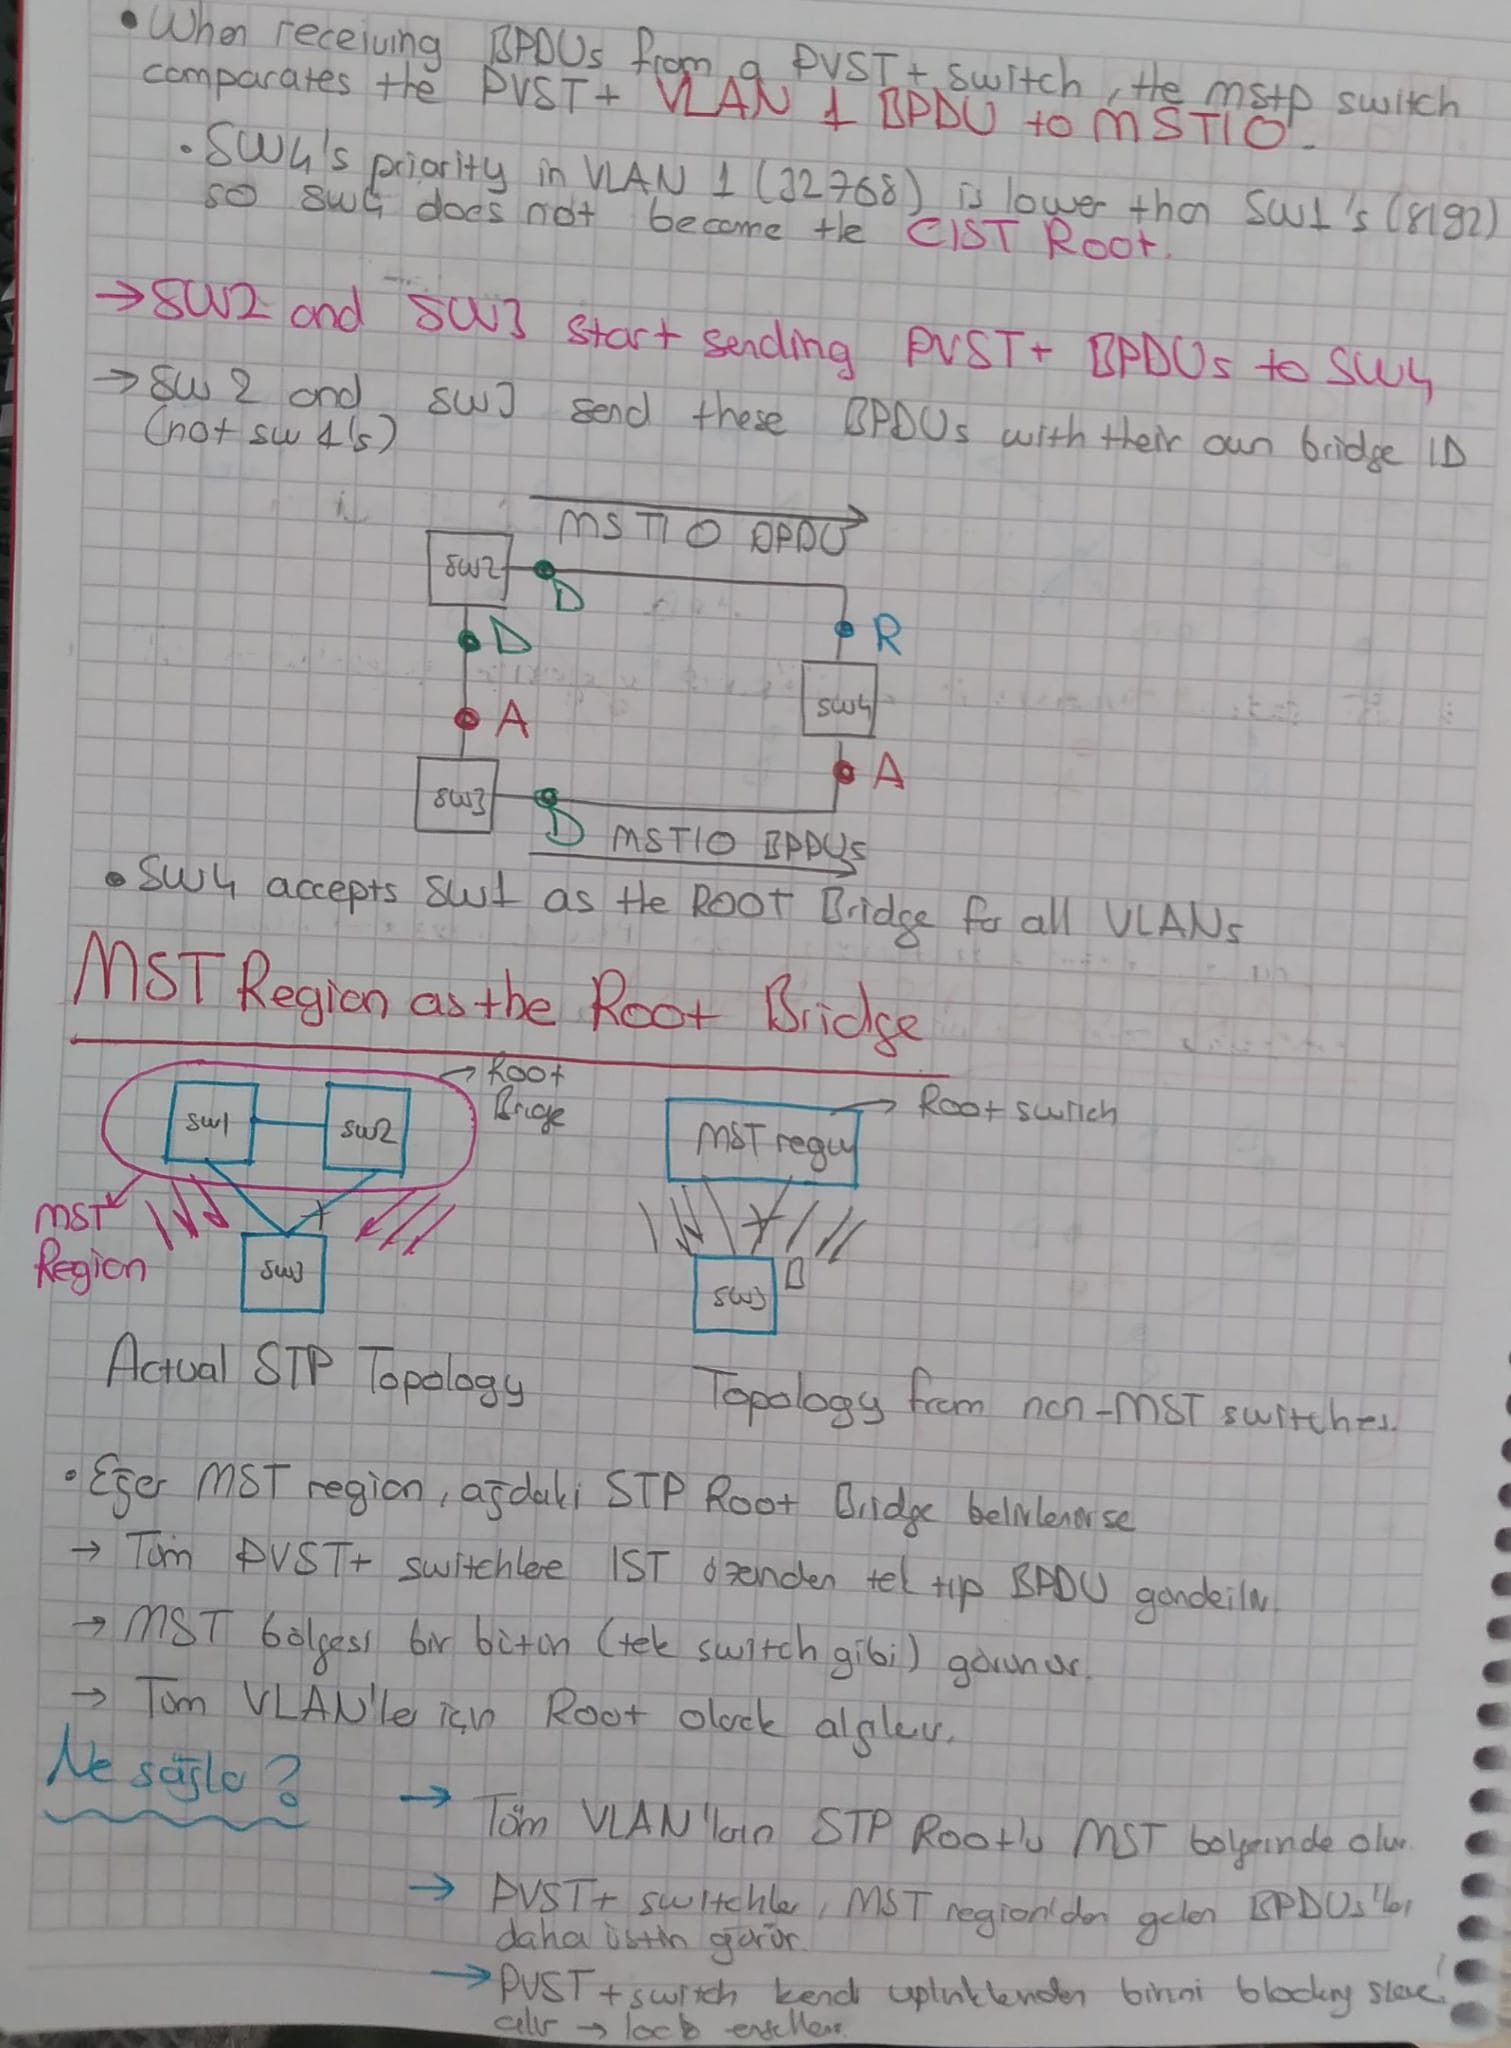 • When receiving BPDUs from a PVST+ switch, the mstp switch
comparates the PVST+ VLAN 1 BPDU to MSTI0.
• SW4's priority in VLAN 1 (32768) is lower than SW1's (8192)
so SW4 does not become the CIST Root.
→ SW2 and SW3 start sending PVST+ BPDUs to SW4
→ SW2 and SW3 send these BPDUs with their own bridge ID
(not SW1's)
MSTI0 BPDU
SW2
D
D
R
SW4
A
A
SW3
D
MSTI0 BPDUs
• SW4 accepts SW1 as the ROOT Bridge for all VLANs
MST Region as the Root Bridge
→ Root
Brige
SW1
SW2
MST
Region
SW3
→ Root switch
MST
SW3
B
Actual STP Topology
Topology from non-MST switches.
• Eğer MST region, ağdaki STP Root Bridge belirlenirse
→ Tüm PVST+ switchlere IST üzerinden tek tip BPDU
→ MST bölgesi bir bütün (tek switch gibi) görünür.
→ Tüm VLAN'le için Root olarak
Ne sağla?
→ Tüm VLAN'ların STP Root'u MST bölgesinde olur.
→ PVST+ switchler, MST region'dan gelen BPDUs'ları
daha üstün görür.
→ PVST+ switch kendi uplinklerinden birini blocking
alır →